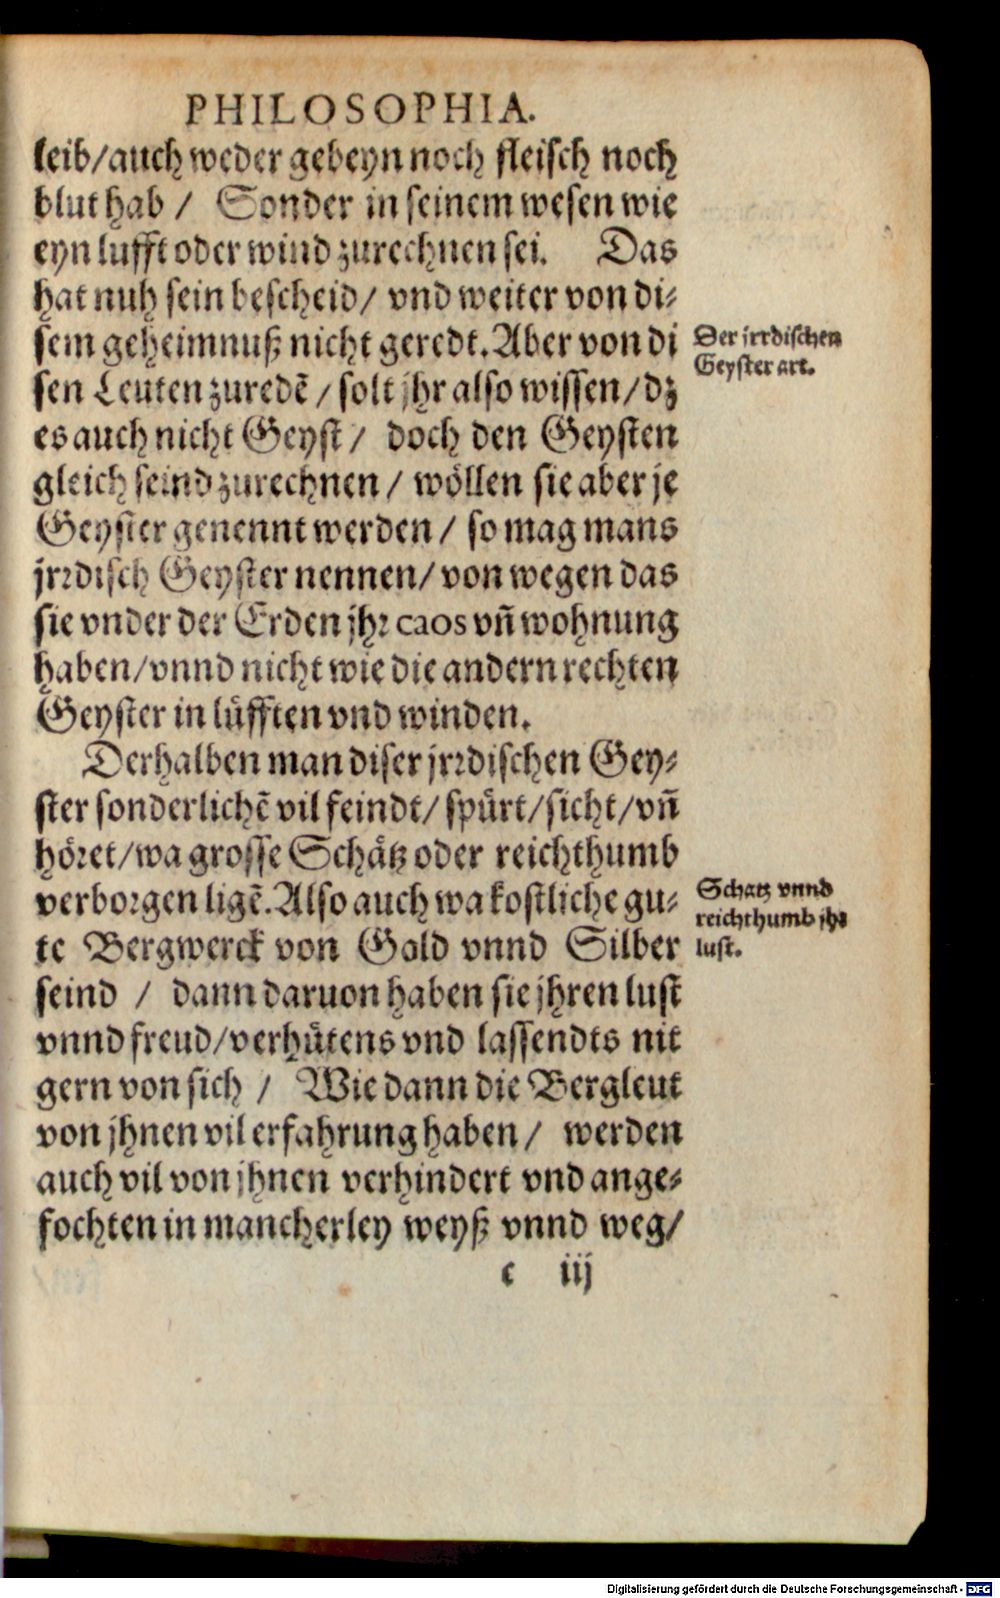 PHILOSOPHIA.
leib/auch weder gebeyn noch fleisch noch
blut hab / Sonder in seinem wesen wie
eyn lufft oder wind zurechnen sei. Das
hat nuh sein bescheid/ vnd weiter von di-
sem geheimnuß nicht geredt. Aber von di
sen Leuten zuredē / solt jhr also wissen/dz
es auch nicht Geyst / doch den Geysten
gleich seind zurechnen / wöllen sie aber je
Geyster genennt werden / so mag mans
jrrdisch Geyster nennen/ von wegen das
sie vnder der Erden jhr caos vñ wohnung
haben/vnnd nicht wie die andern rechten
Geyster in lüfften vnd winden.
Derhalben man diser jrrdischen Gey-
ster sonderlichē vil feindt/ spürt/sicht/vñ
höret/wa grosse Schätz oder reichthumb
verborgen ligē. Also auch wa kostliche gu-
te Bergwerck von Gold vnnd Silber
seind / dann daruon haben sie jhren lust
vnnd freud/verhütens vnd lassendts nit
gern von sich / Wie dann die Bergleut
von jhnen vil erfahrung haben / werden
auch vil von jhnen verhindert vnd ange-
fochten in mancherley weyß vnnd weg/
c iij
Der jrrdischen
Geyster art.
Schatz vnnd
reichthumb jhr
lust.
Digitalisierung gefördert durch die Deutsche Forschungsgemeinschaft - DFG